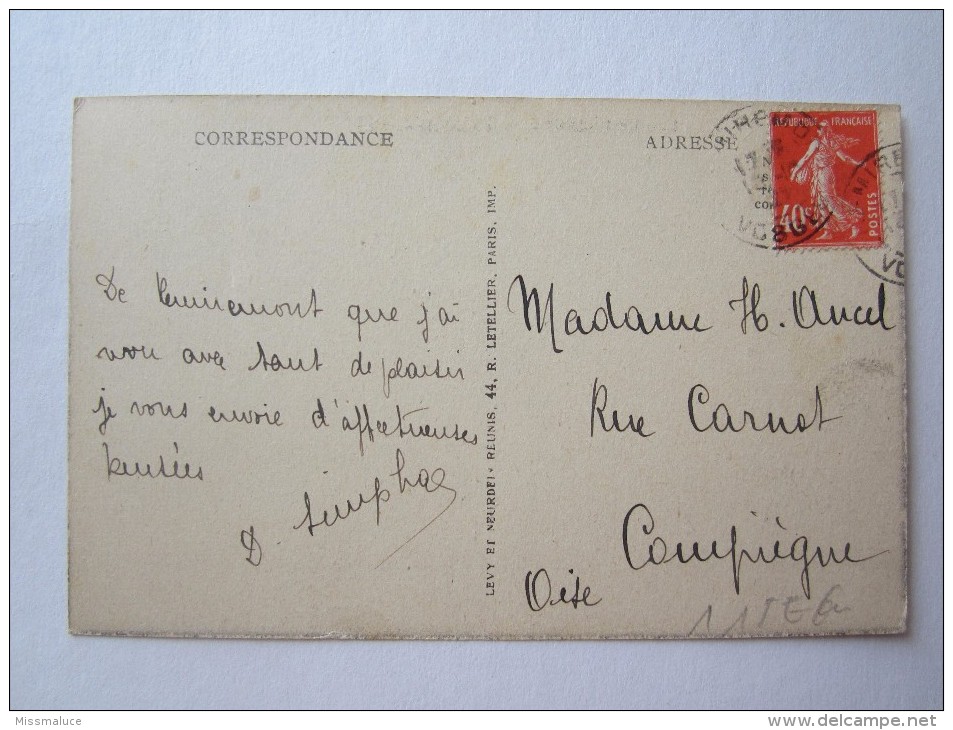 CORRESPONDANCE
ADRESSE
REPUBLIQUE FRANÇAISE
POSTES
40c
VOSGES
De Remiremont que j'ai
avec tant de plaisir
je vous envoie d'affectueuses
pensées
D.
LEVY ET NEURDEIN REUNIS, 44, R. LETELLIER, PARIS, IMP.
Madame H. Ancel
Rue Carnot
Compiègne
Oise
Missmaluce
delcampe.net